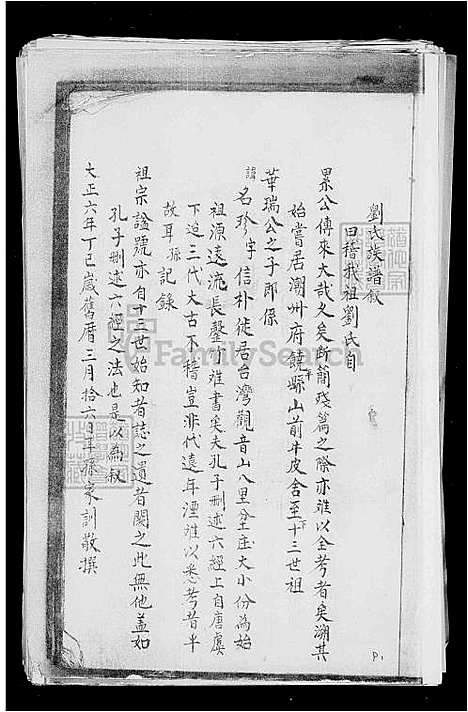 劉氏族譜叙
曰稽我祖劉氏自
累公傳來大哉久矣断簡殘篇之餘亦难以全考者矣溯其
始嘗居潮州府饒平縣山前牛皮舍至十三世祖
華瑞公之子即係
諱名珍字信朴徙居台灣觀音山八里坌庄大小份為始
祖源遠流長罄竹难書矣夫孔子刪述六經上自唐虞
下迄三代太古不稽豈非代遠年湮难以悉考昔耳
故耳孫記錄
祖宗諡號亦自十三世始知者誌之遺者闕之此無他盖如
孔子刪述六經之法也是以為叙
大正六年丁巳歲舊曆三月拾六日耳孫家訓敬撰
P.1
FamilySearch